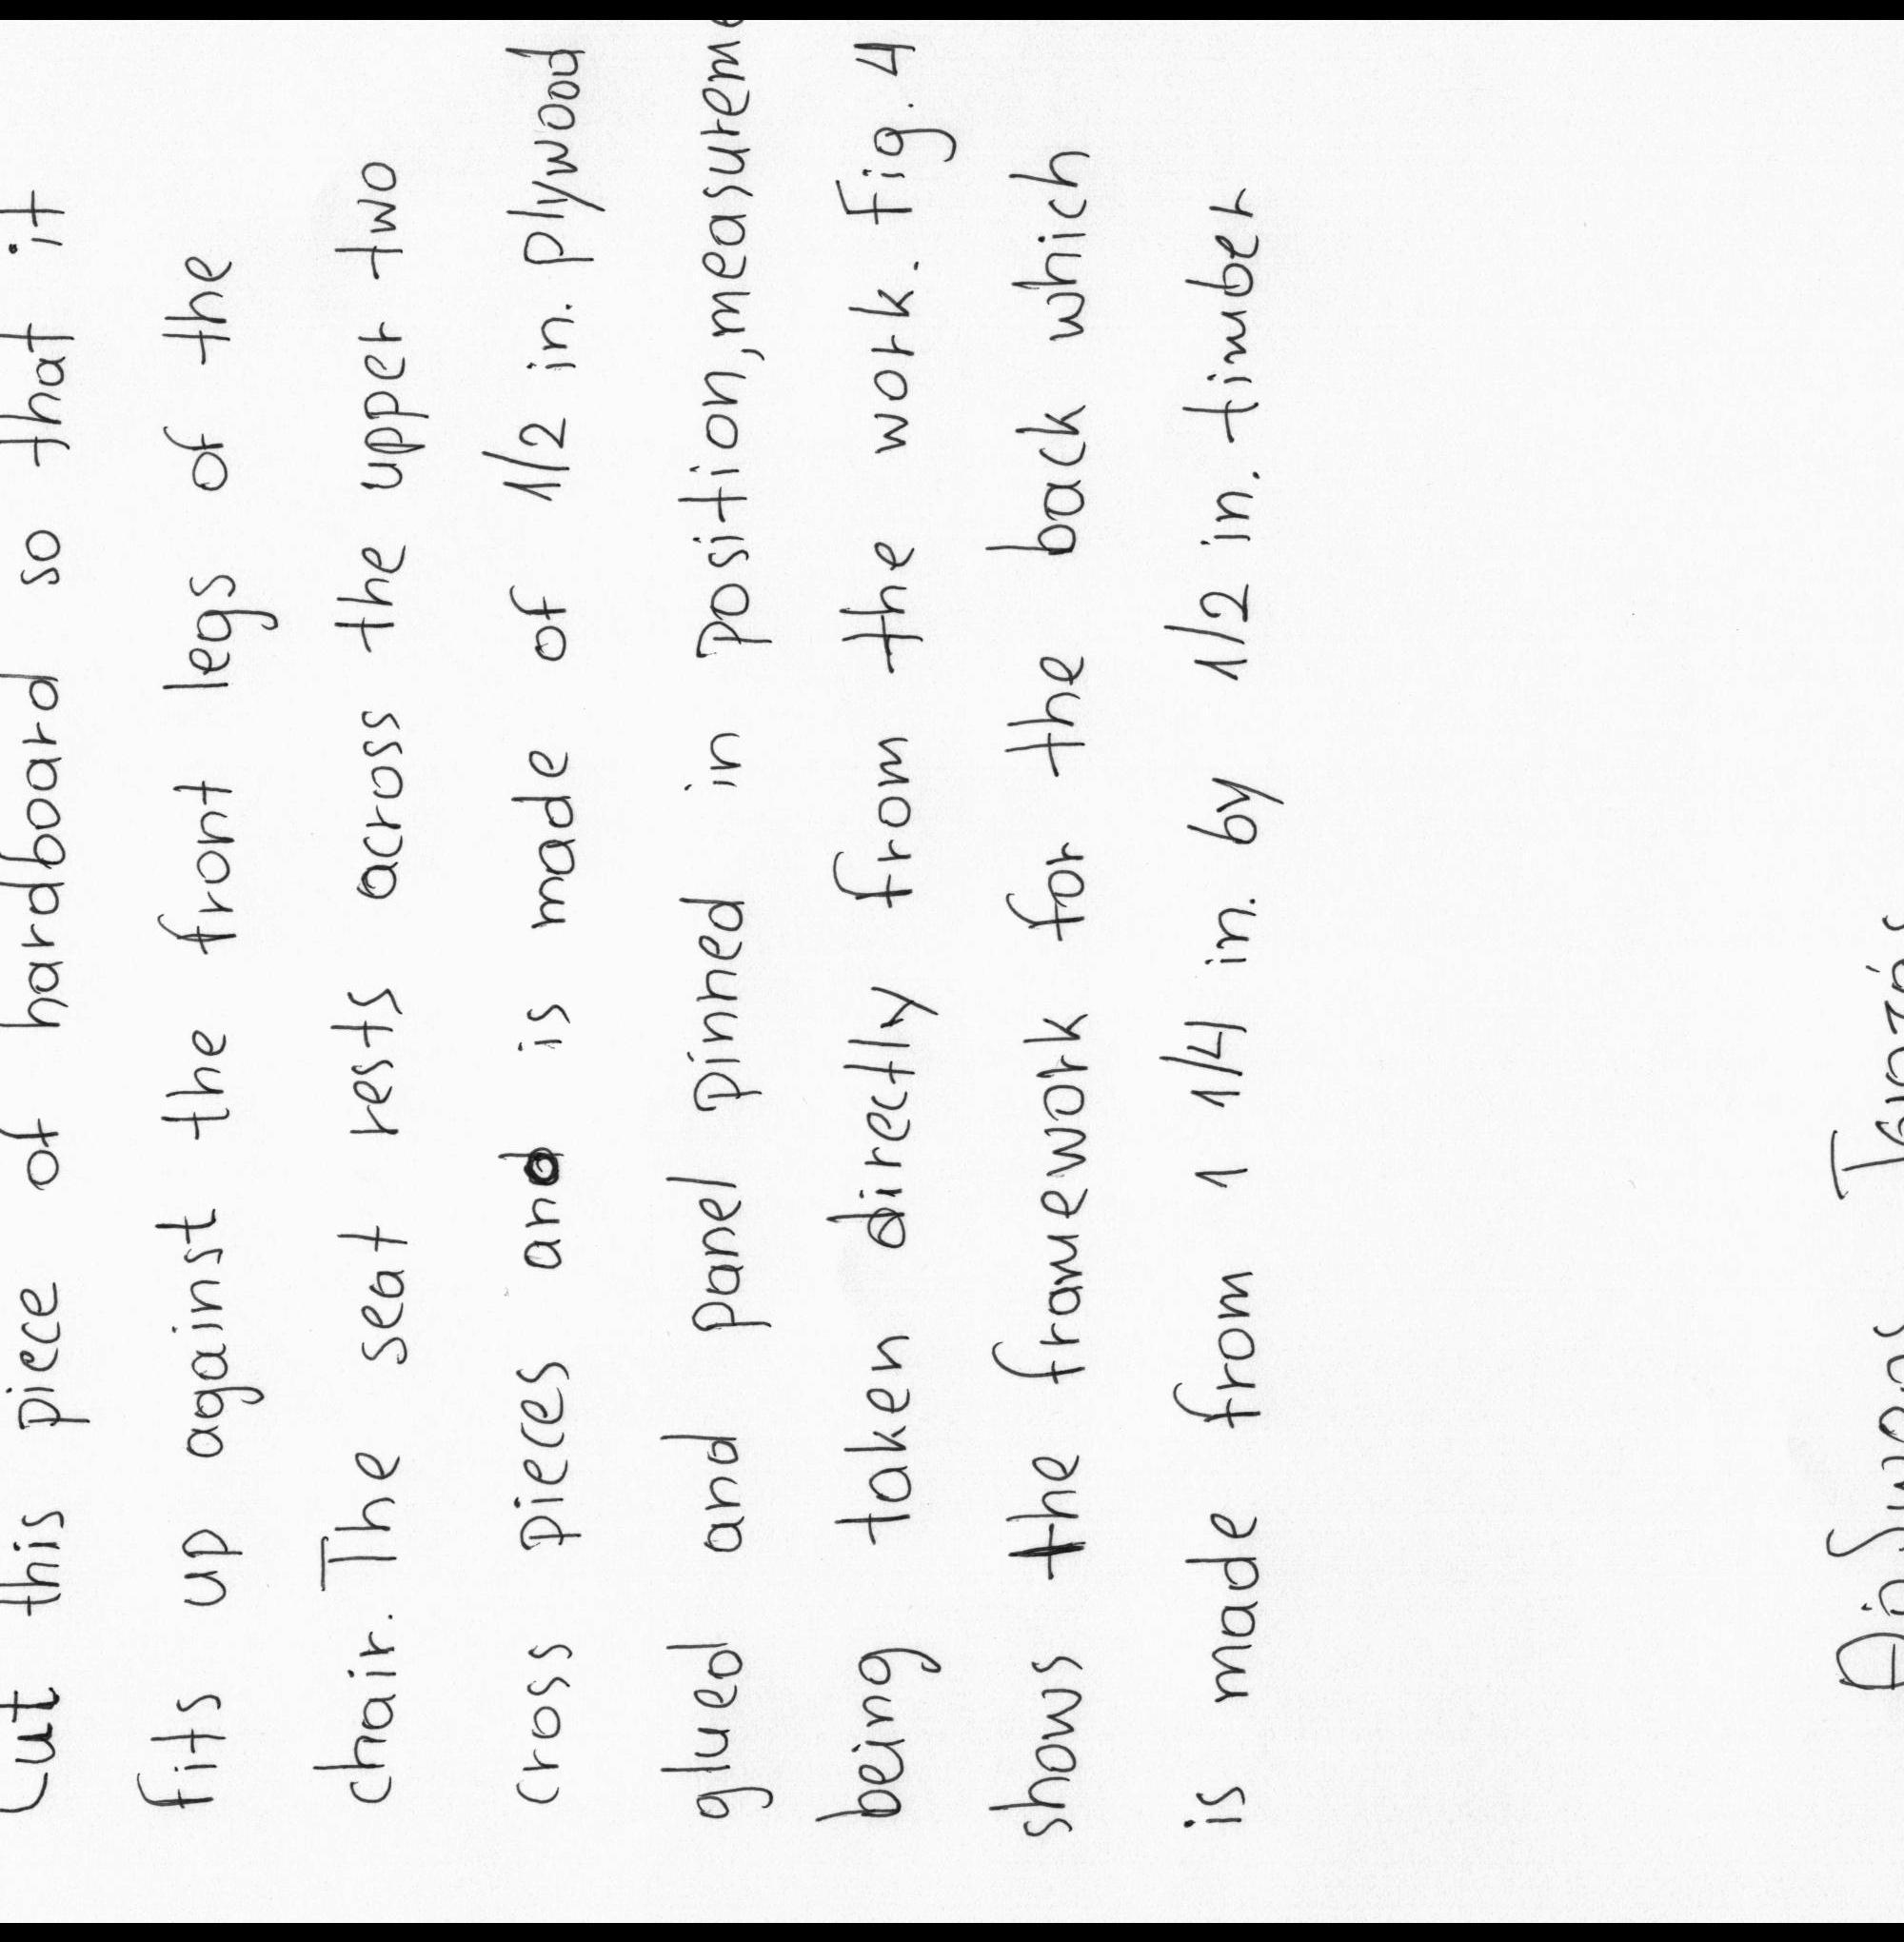 Cut this piece of hardboard so that it
fits up against the front legs of the
chair. The seat rests across the upper two
cross pieces and is made of 1/2 in. plywood
glued and panel pinned in position, measureme
being taken directly from the work. Fig. 4
shows the framework for the back which
is made from 1 1/4 in. by 1/2 in. timber